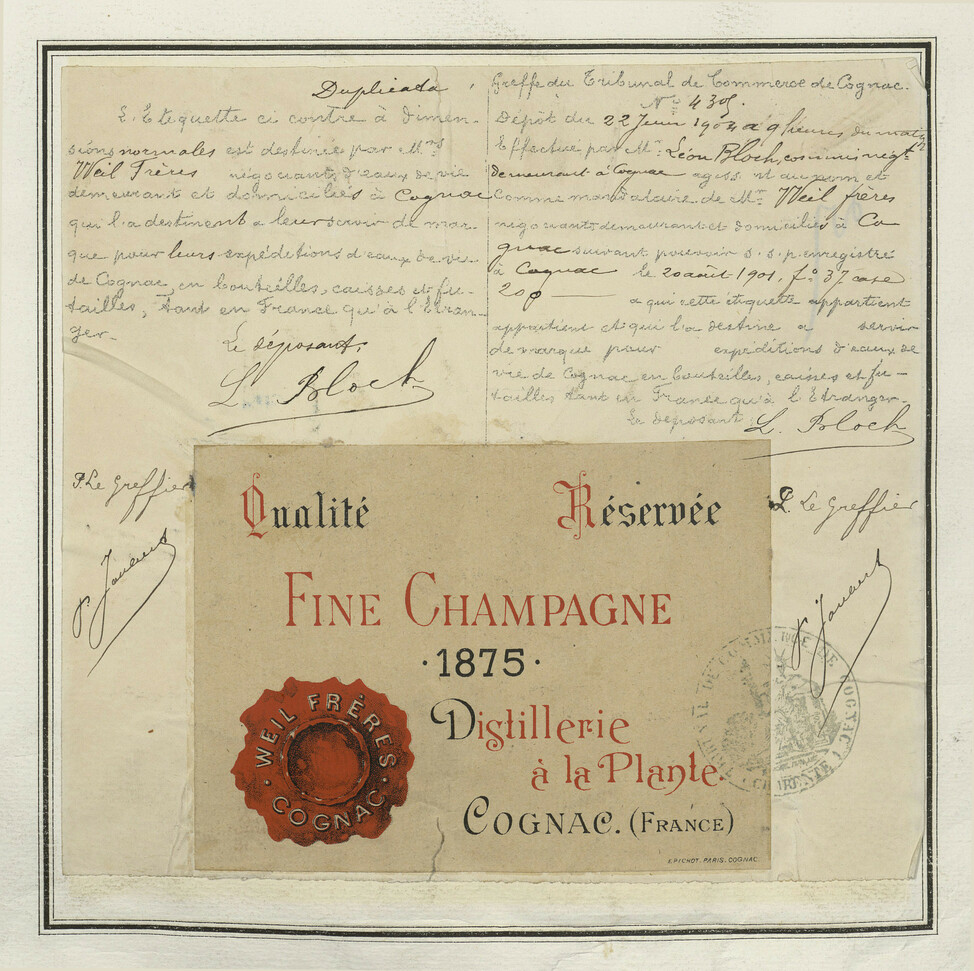 Duplicata
L'Etequette ci contre à dimen-
sions normales est destinée par Mrs
Weil Frères négociants d'eaux de vie
demeurant et domiciliés à Cognac
qui l'a destinent a leur servir de mar-
que pour leurs expéditions d'eaux de vie
de Cognac, en bouteilles, caisses et fu-
tailles, tant en France qu'à l'Etran-
ger-
Le déposant,
L. Bloch
P. Le Greffier
Greffe du Tribunal de Commerce de Cognac.
No 439.
Dépôt du 22 Juin 1904 a 9 heures du matin
Effectué par Mr Léon Bloch, commis négt
demeurant à Cognac agissant au nom et
comme mandataire de Mrs Weil frères
négociants demeurant et domiciliés à Co
gnac suivant pouvoir s.s.p. enregistré
à Cognac le 20 août 1901, fo 37 case
20
a qui cette étiquette appartient
appartient et qui l'a destine a servir
de marque pour expéditions d'eaux de
vie de Cognac en bouteilles, caisses et fu-
tailles tant en France qu'à l'Etranger-
Le déposant L. Bloch
P. Le Greffier
Qualité Réservée
FINE CHAMPAGNE
·1875·
Distillerie
à la Plante.
COGNAC. (FRANCE)
WEIL FRÈRES
· COGNAC ·
E. PICHOT. PARIS. COGNAC.
TRIBUNAL DE COMMERCE DE COGNAC
CHARENTE